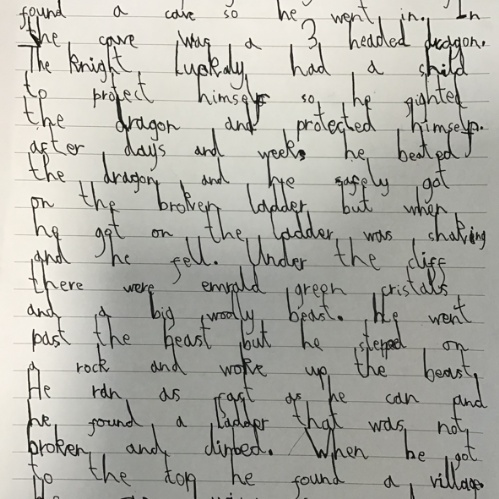 found a cave so he went in. In
the cave was a 3 headed dragon.
The knight Luckaly had a shild
to protect himself so he fighted
the dragon and protected himself.
after days and weeks he beated
the dragon and he safely got
on the broken ladder but when
he got on the ladder was shaking
and he fell. Under the cliff
there were emrald green cristals
and a big woolly beast. He went
past the beast but he steped on
a rock and woke up the beast.
He ran as fast as he can and
he found a ladder that was not
broken and climbed. When he got
to the top he found a village.